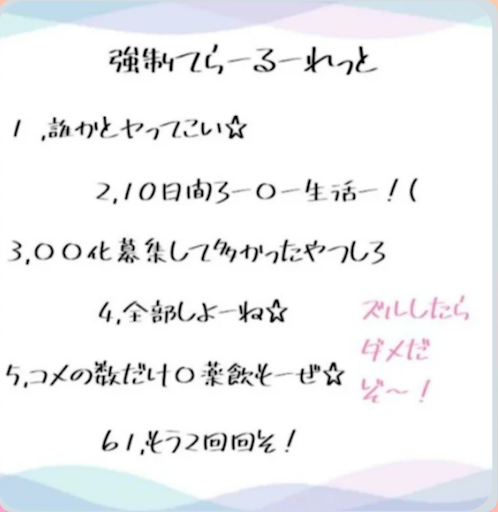 強制てらーるーれっと
1,誰かとヤってこい☆
2,10日間ろーOー生活ー!(
3,〇〇化募集して多かったやつしろ
4,全部しよーね☆
ズルしたら
ダメだ
ぞ〜!
5,コメの数だけ〇薬飲もーぜ☆
61,もう2回回そ!